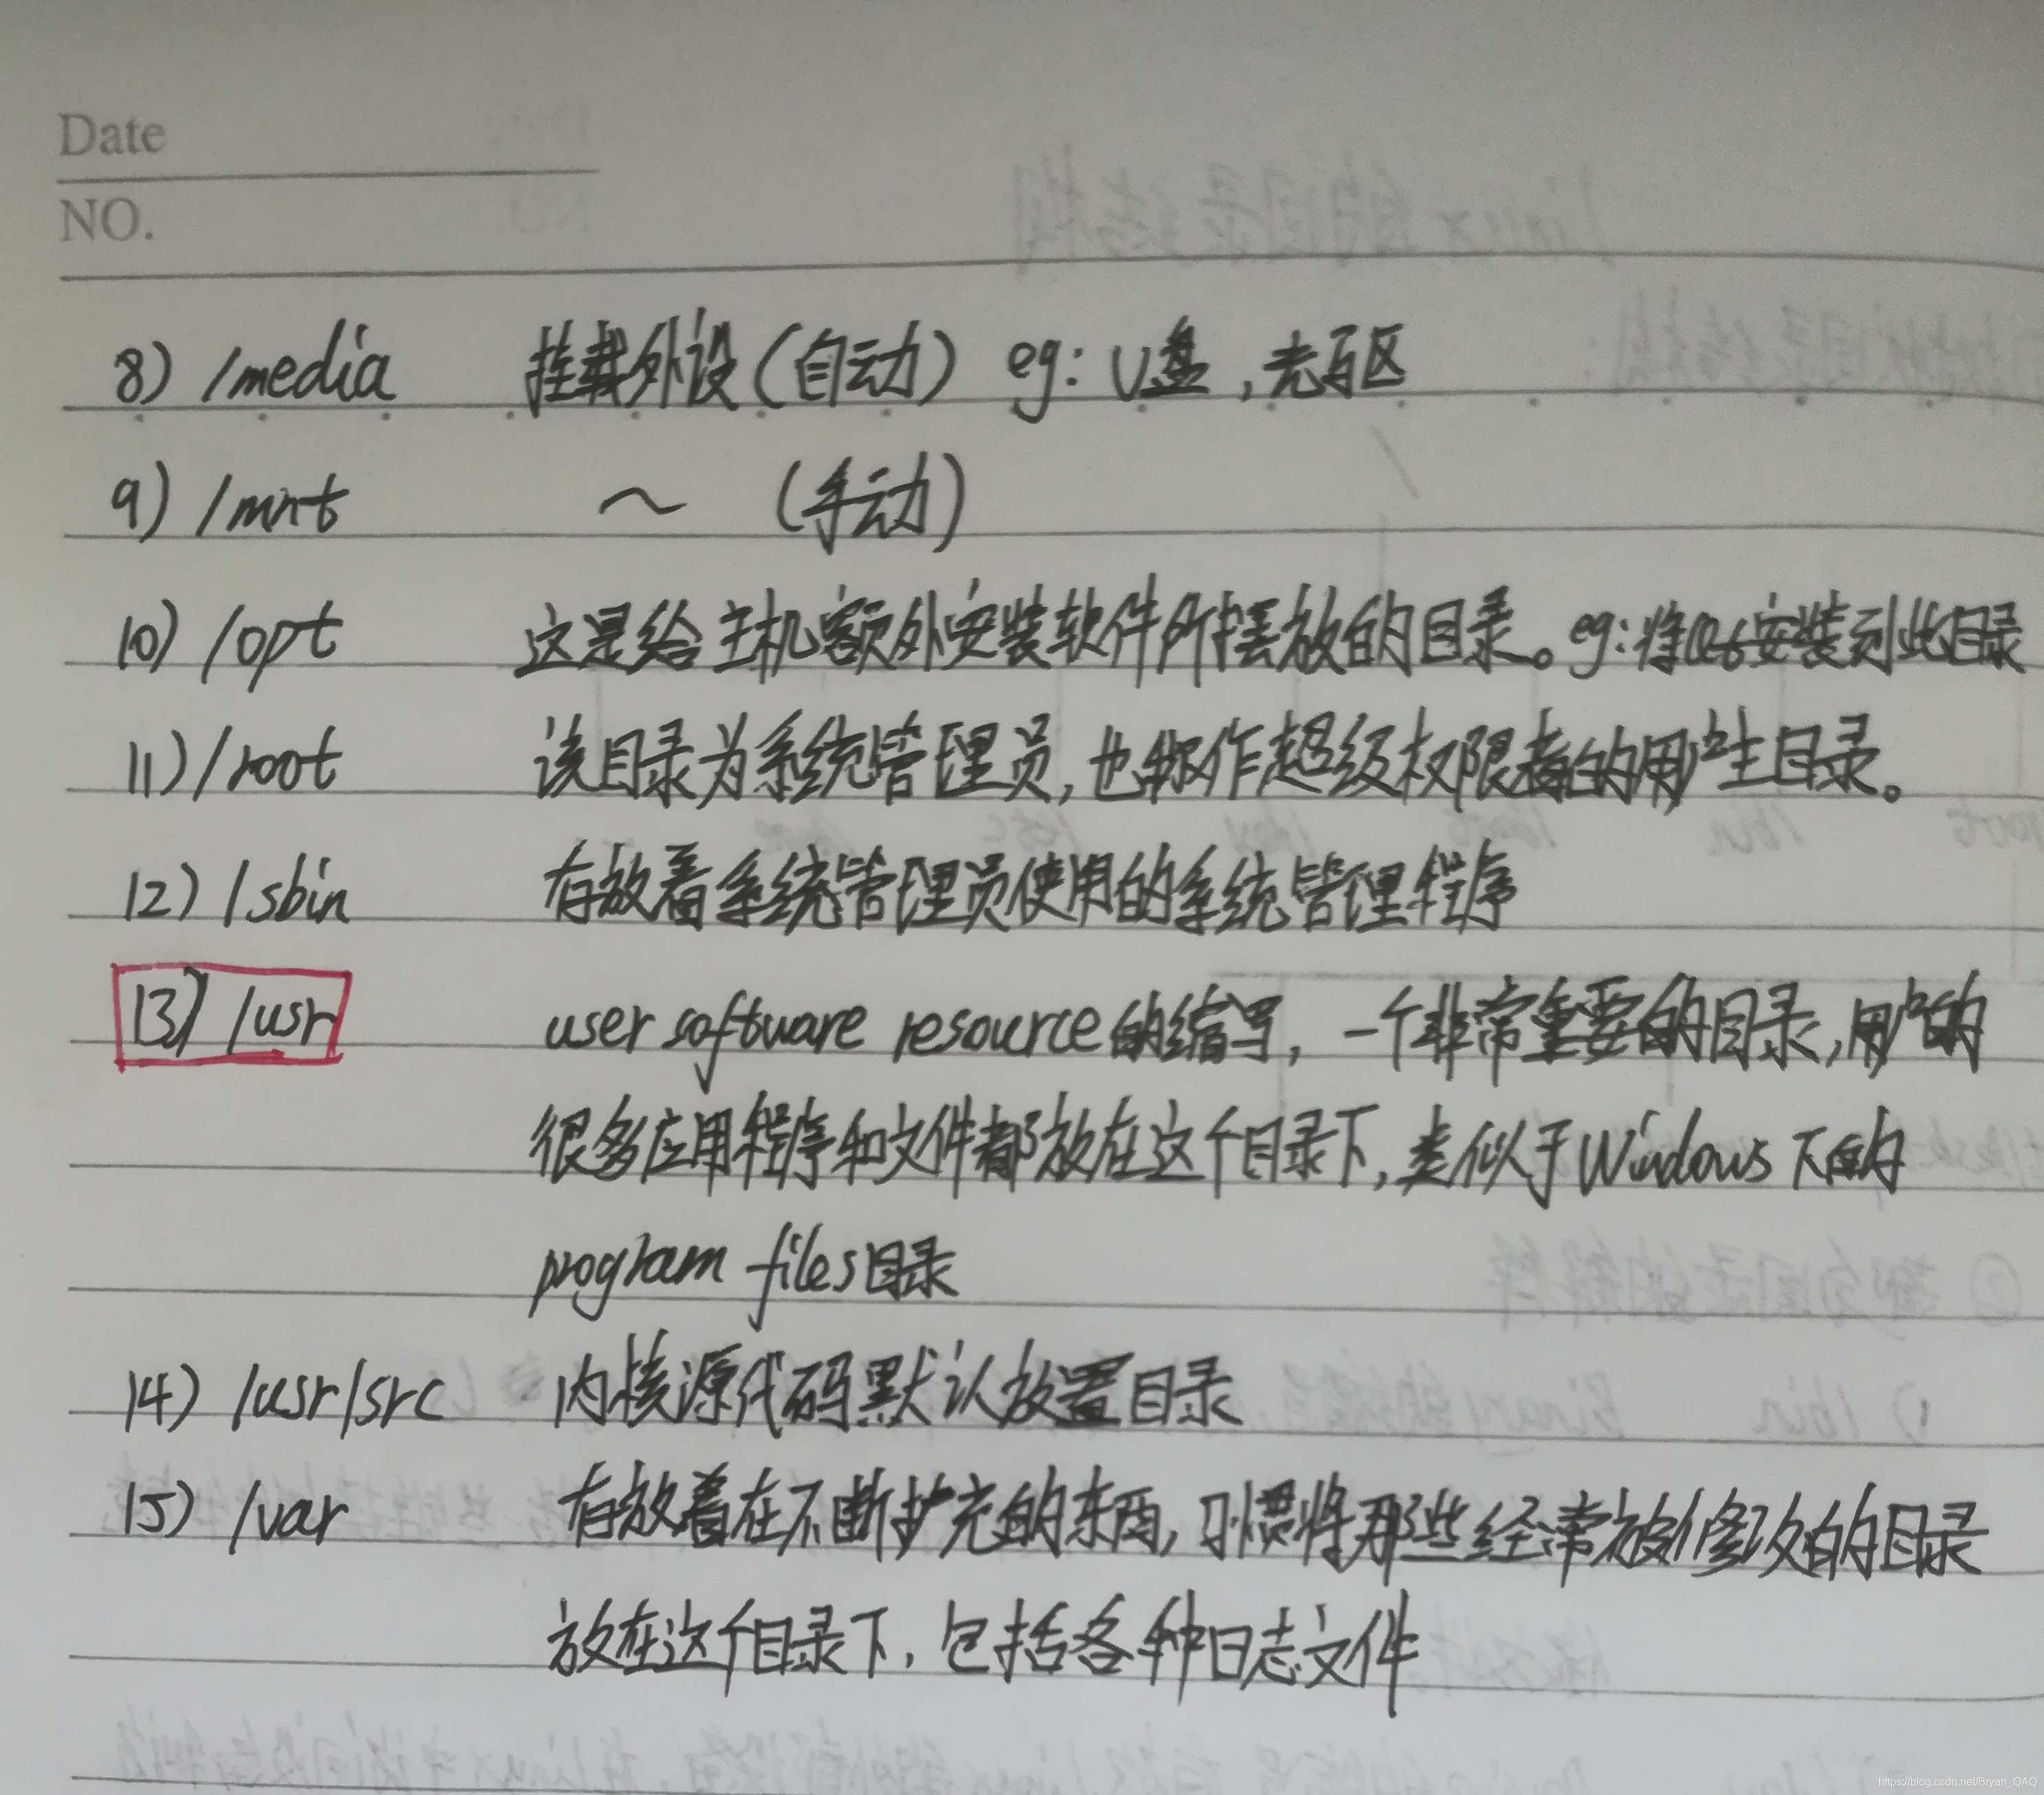 Date
NO.
8) /media 挂载外设(自动) eg: U盘,光驱
9) /mnt ～ (手动)
10) /opt 这是给主机额外安装软件所摆放的目录。eg:将安装到此目录
11) /root 该目录为系统管理员,也称作超级权限者的用户主目录。
12) /sbin 存放着系统管理员使用的系统管理程序
13) /usr user software resource的缩写,一个非常重要的目录,用户的
很多应用程序和文件都放在这个目录下,类似于Windows下的
program files目录
14) /usr/src 内核源代码默认放置目录
15) /var 存放着在不断扩充的东西,习惯将那些经常被修改的目录
放在这个目录下,包括各种日志文件
https://blog.csdn.net/Bryan_QAQ